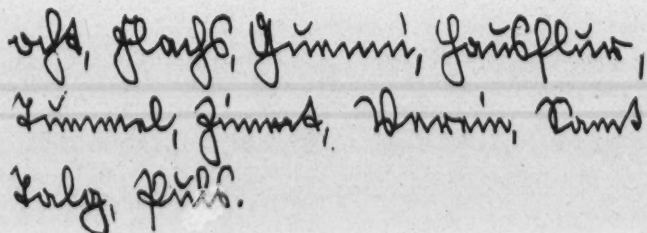 oft, Flachs, Gummi, Hausflur,
Tummel, Zimmt, Verein, Samt
Talg, Puls.